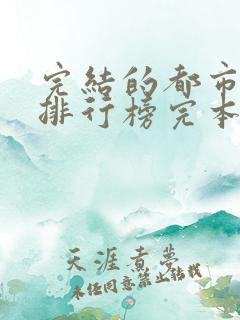 完结的都市
排行榜完本
天涯煮梦
未经同意禁止转载